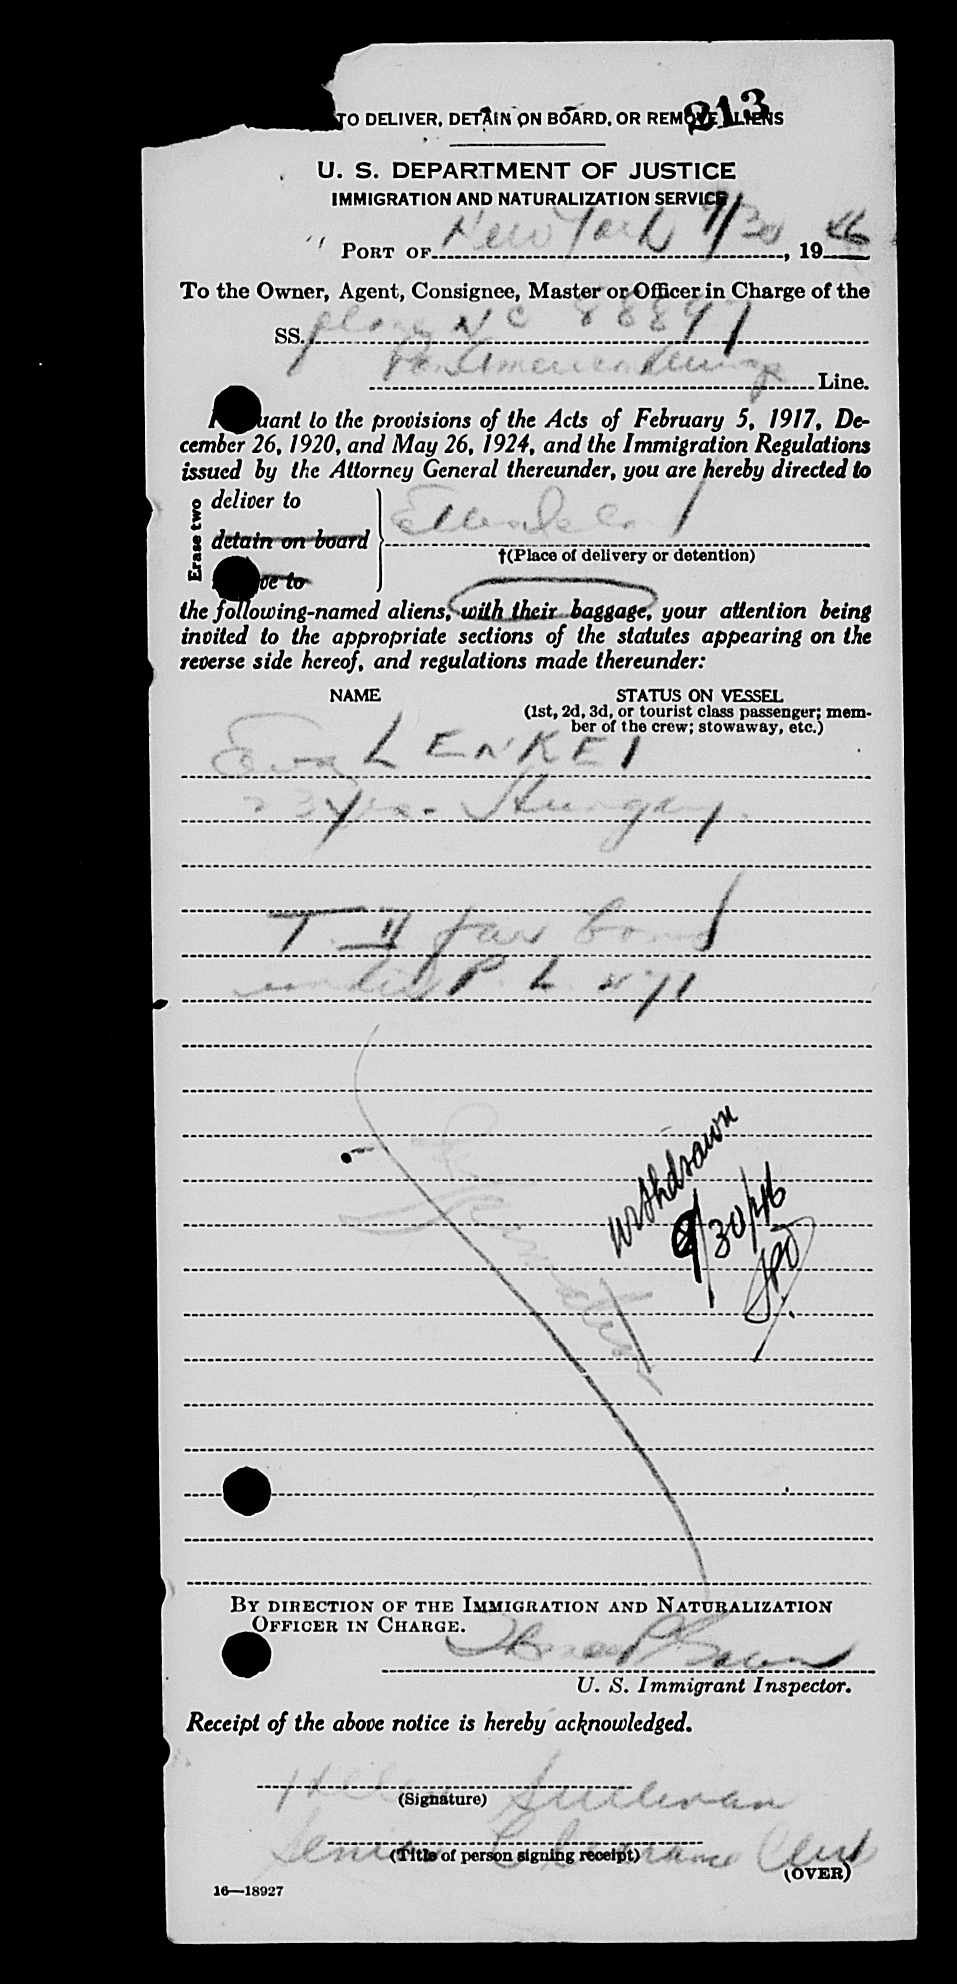 213
TO DELIVER, DETAIN ON BOARD, OR REMOVE ALIENS
U. S. DEPARTMENT OF JUSTICE
IMMIGRATION AND NATURALIZATION SERVICE
PORT OF New York 9/30, 1946
To the Owner, Agent, Consignee, Master or Officer in Charge of the
SS. plane NC 88897
Pan American Airways Line.
Pursuant to the provisions of the Acts of February 5, 1917, De-
cember 26, 1920, and May 26, 1924, and the Immigration Regulations
issued by the Attorney General thereunder, you are hereby directed to
Erase two
deliver to
detain on board
remove to
Ellis Island
†(Place of delivery or detention)
the following-named aliens, with their baggage, your attention being
invited to the appropriate sections of the statutes appearing on the
reverse side hereof, and regulations made thereunder:
NAME STATUS ON VESSEL
(1st, 2d, 3d, or tourist class passenger; mem-
ber of the crew; stowaway, etc.)
Eva LENKEI
23 yrs. Hungary.
T. for bond
under P. L. 471
withdrawn
9/30/46
BY DIRECTION OF THE IMMIGRATION AND NATURALIZATION
OFFICER IN CHARGE.
U. S. Immigrant Inspector.
Receipt of the above notice is hereby acknowledged.
Helen Sullivan
(Signature)
Senior Clearance Clerk
(Title of person signing receipt)
(OVER)
16—18927